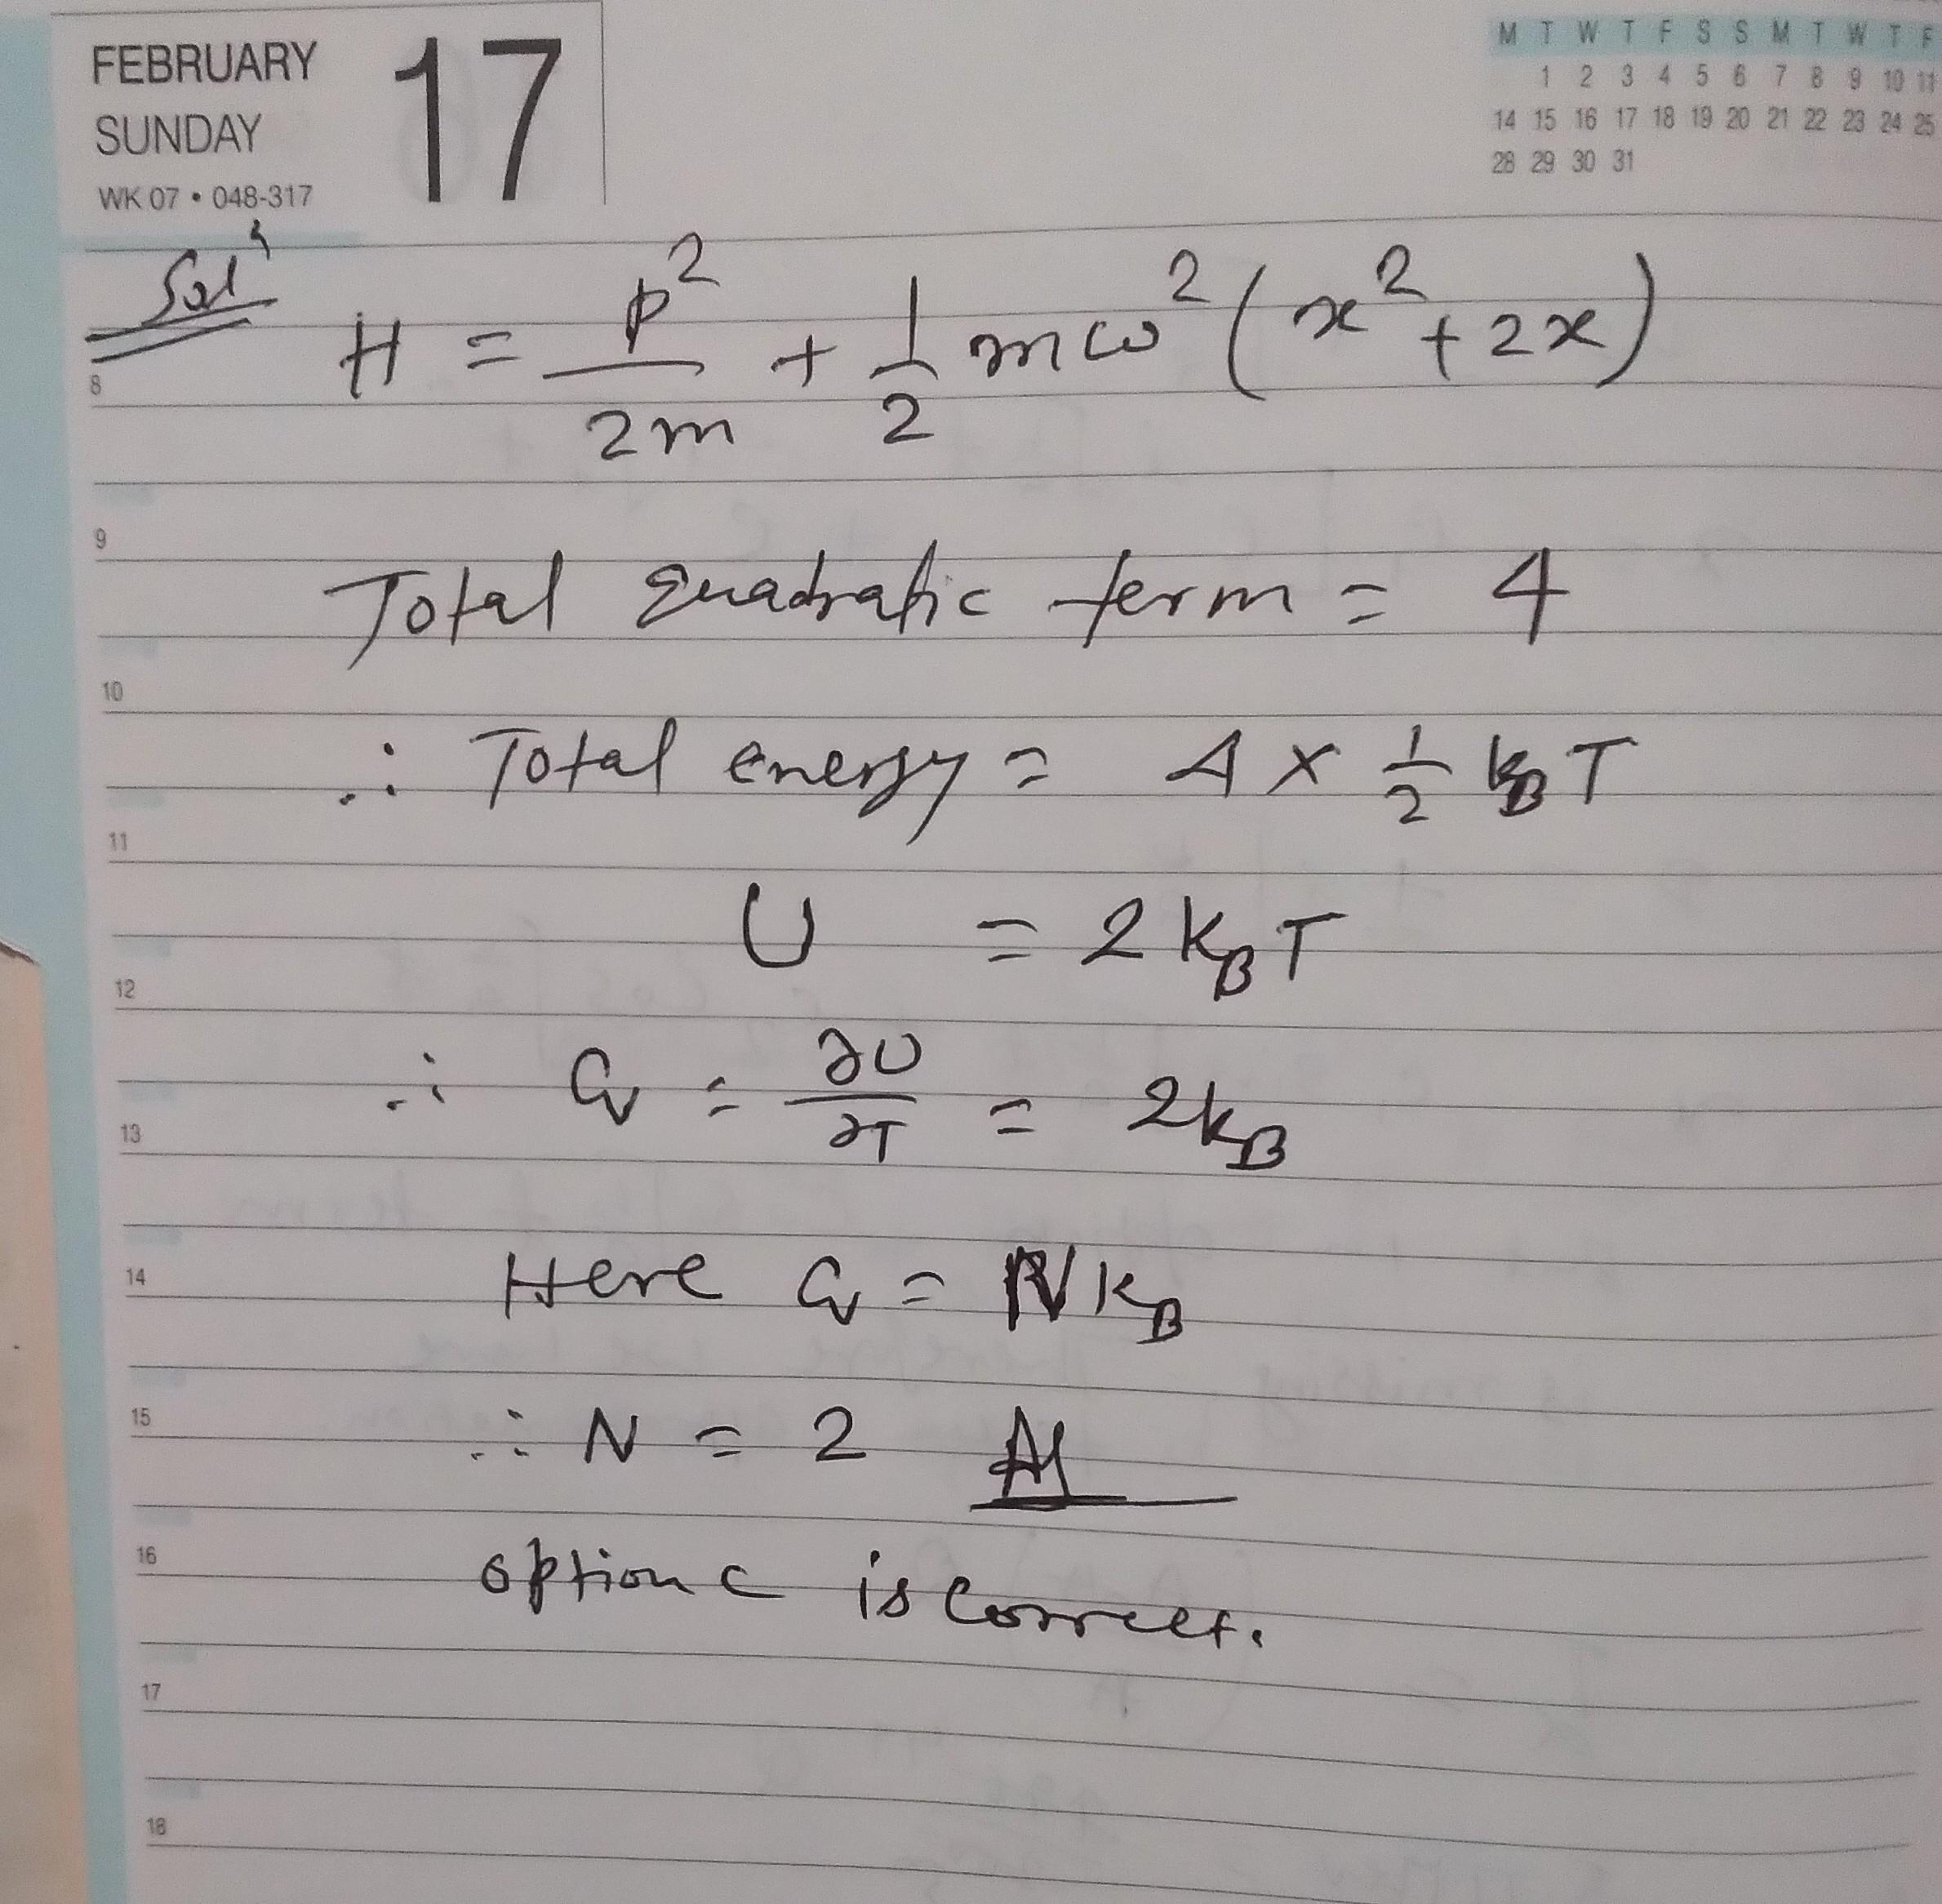 FEBRUARY 17
SUNDAY
WK 07 • 048-317
M T W T F S S M T W T F
1 2 3 4 5 6 7 8 9 10 11
14 15 16 17 18 19 20 21 22 23 24 25
28 29 30 31
Solⁿ
H = p²/2m + 1/2 mω² (x² + 2x)
8
9
Total quadratic term = 4
10
∴ Total energy = 4 × 1/2 k_B T
11
U = 2 k_B T
12
∴ C_v = ∂U/∂T = 2k_B
13
Here C_v = N k_B
14
15
∴ N = 2
16
option c is correct.
17
18